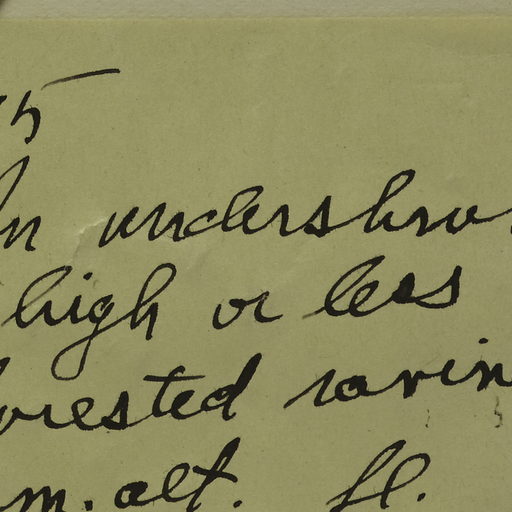 An undershru
high or less
forested ravin
m. alt. fl.